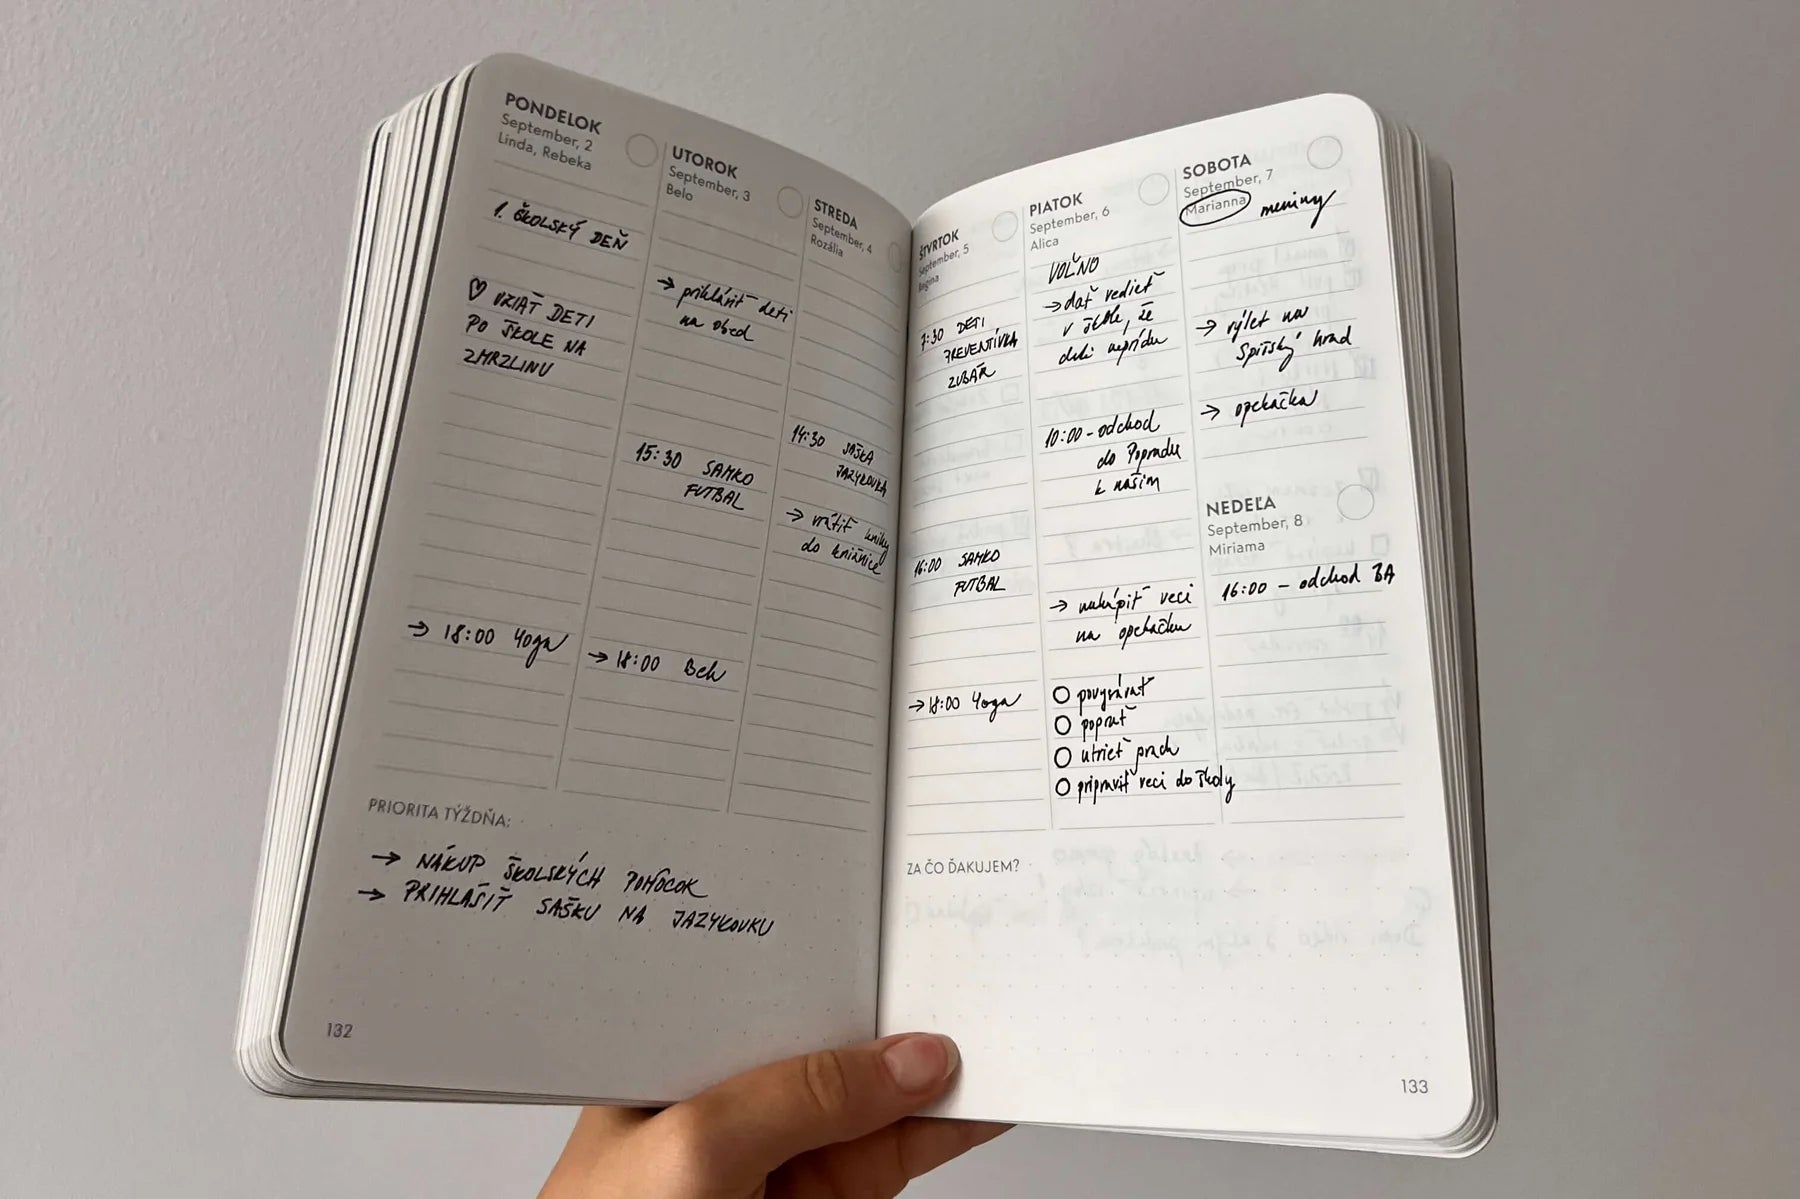 PONDELOK
September, 2
Linda, Rebeka
1. ŠKOLSKÝ DEŇ
♡ VZIAŤ DETI
PO ŠKOLE NA
ZMRZLINU
→ 18:00 Yoga
UTOROK
September, 3
Belo
→ prihlásiť deti
na obed
15:30 SAMKO
FUTBAL
→ 18:00 Beh
STREDA
September, 4
Rozália
14:30 SAŠKA
JAZYKOVKA
→ vrátiť knihy
do knižnice
PRIORITA TÝŽDŇA:
→ NÁKUP ŠKOLSKÝCH POMÔCOK
→ PRIHLÁSIŤ SAŠKU NA JAZYKOVKU
132
ŠTVRTOK
September, 5
Regina
7:30 DETI
PREVENTÍVKA
ZUBÁR
16:00 SAMKO
FUTBAL
→ 18:00 Yoga
PIATOK
September, 6
Alica
VOĽNO
→ dať vedieť
v škole, že
deti neprídu
10:00 - odchod
do Popradu
k našim
→ nakúpiť veci
na opekačku
○ povysávať
○ poprať
○ utrieť prach
○ pripraviť veci do školy
SOBOTA
September, 7
Marianna meniny
→ výlet na
Spišský hrad
→ opekačka
NEDEĽA
September, 8
Miriama
16:00 - odchod BA
ZA ČO ĎAKUJEM?
133